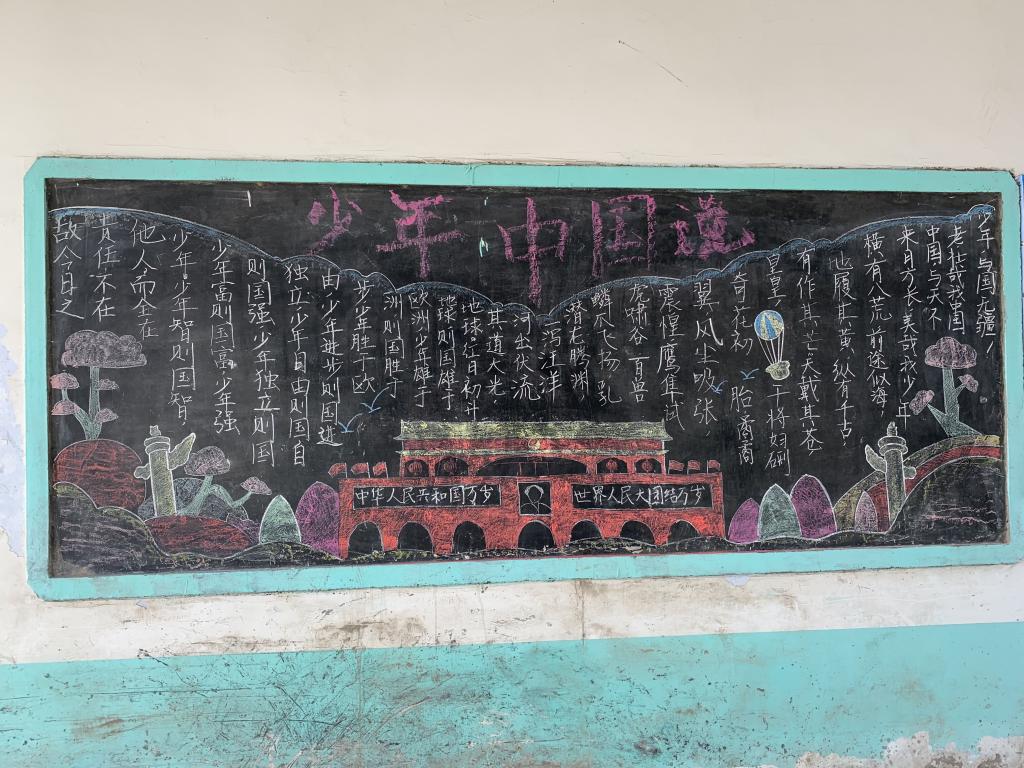 少年中国说
故今日之
责任不在
他人而全在
少年。少年智则国智,
少年富则国富,少年强
则国强少年独立则国
独立少年自由则国自
由少年进步则国进
步少年胜于欧
洲则国胜于
欧洲少年雄于
地球则国雄于
地球。红日初升
其道大光
河出伏流
一泻汪洋
潜龙腾渊,
鳞爪飞扬 乳
虎啸谷 百兽
震惶鹰隼试
翼风尘吸张,
奇花初 胎矞矞
皇皇 干将发硎
有作其芒天戴其苍
地履其黄纵有千古
横有八荒前途似海,
来日方长美哉我少年
中国与天不
老壮哉我国
少年与国无疆!
中华人民共和国万岁
世界人民大团结万岁